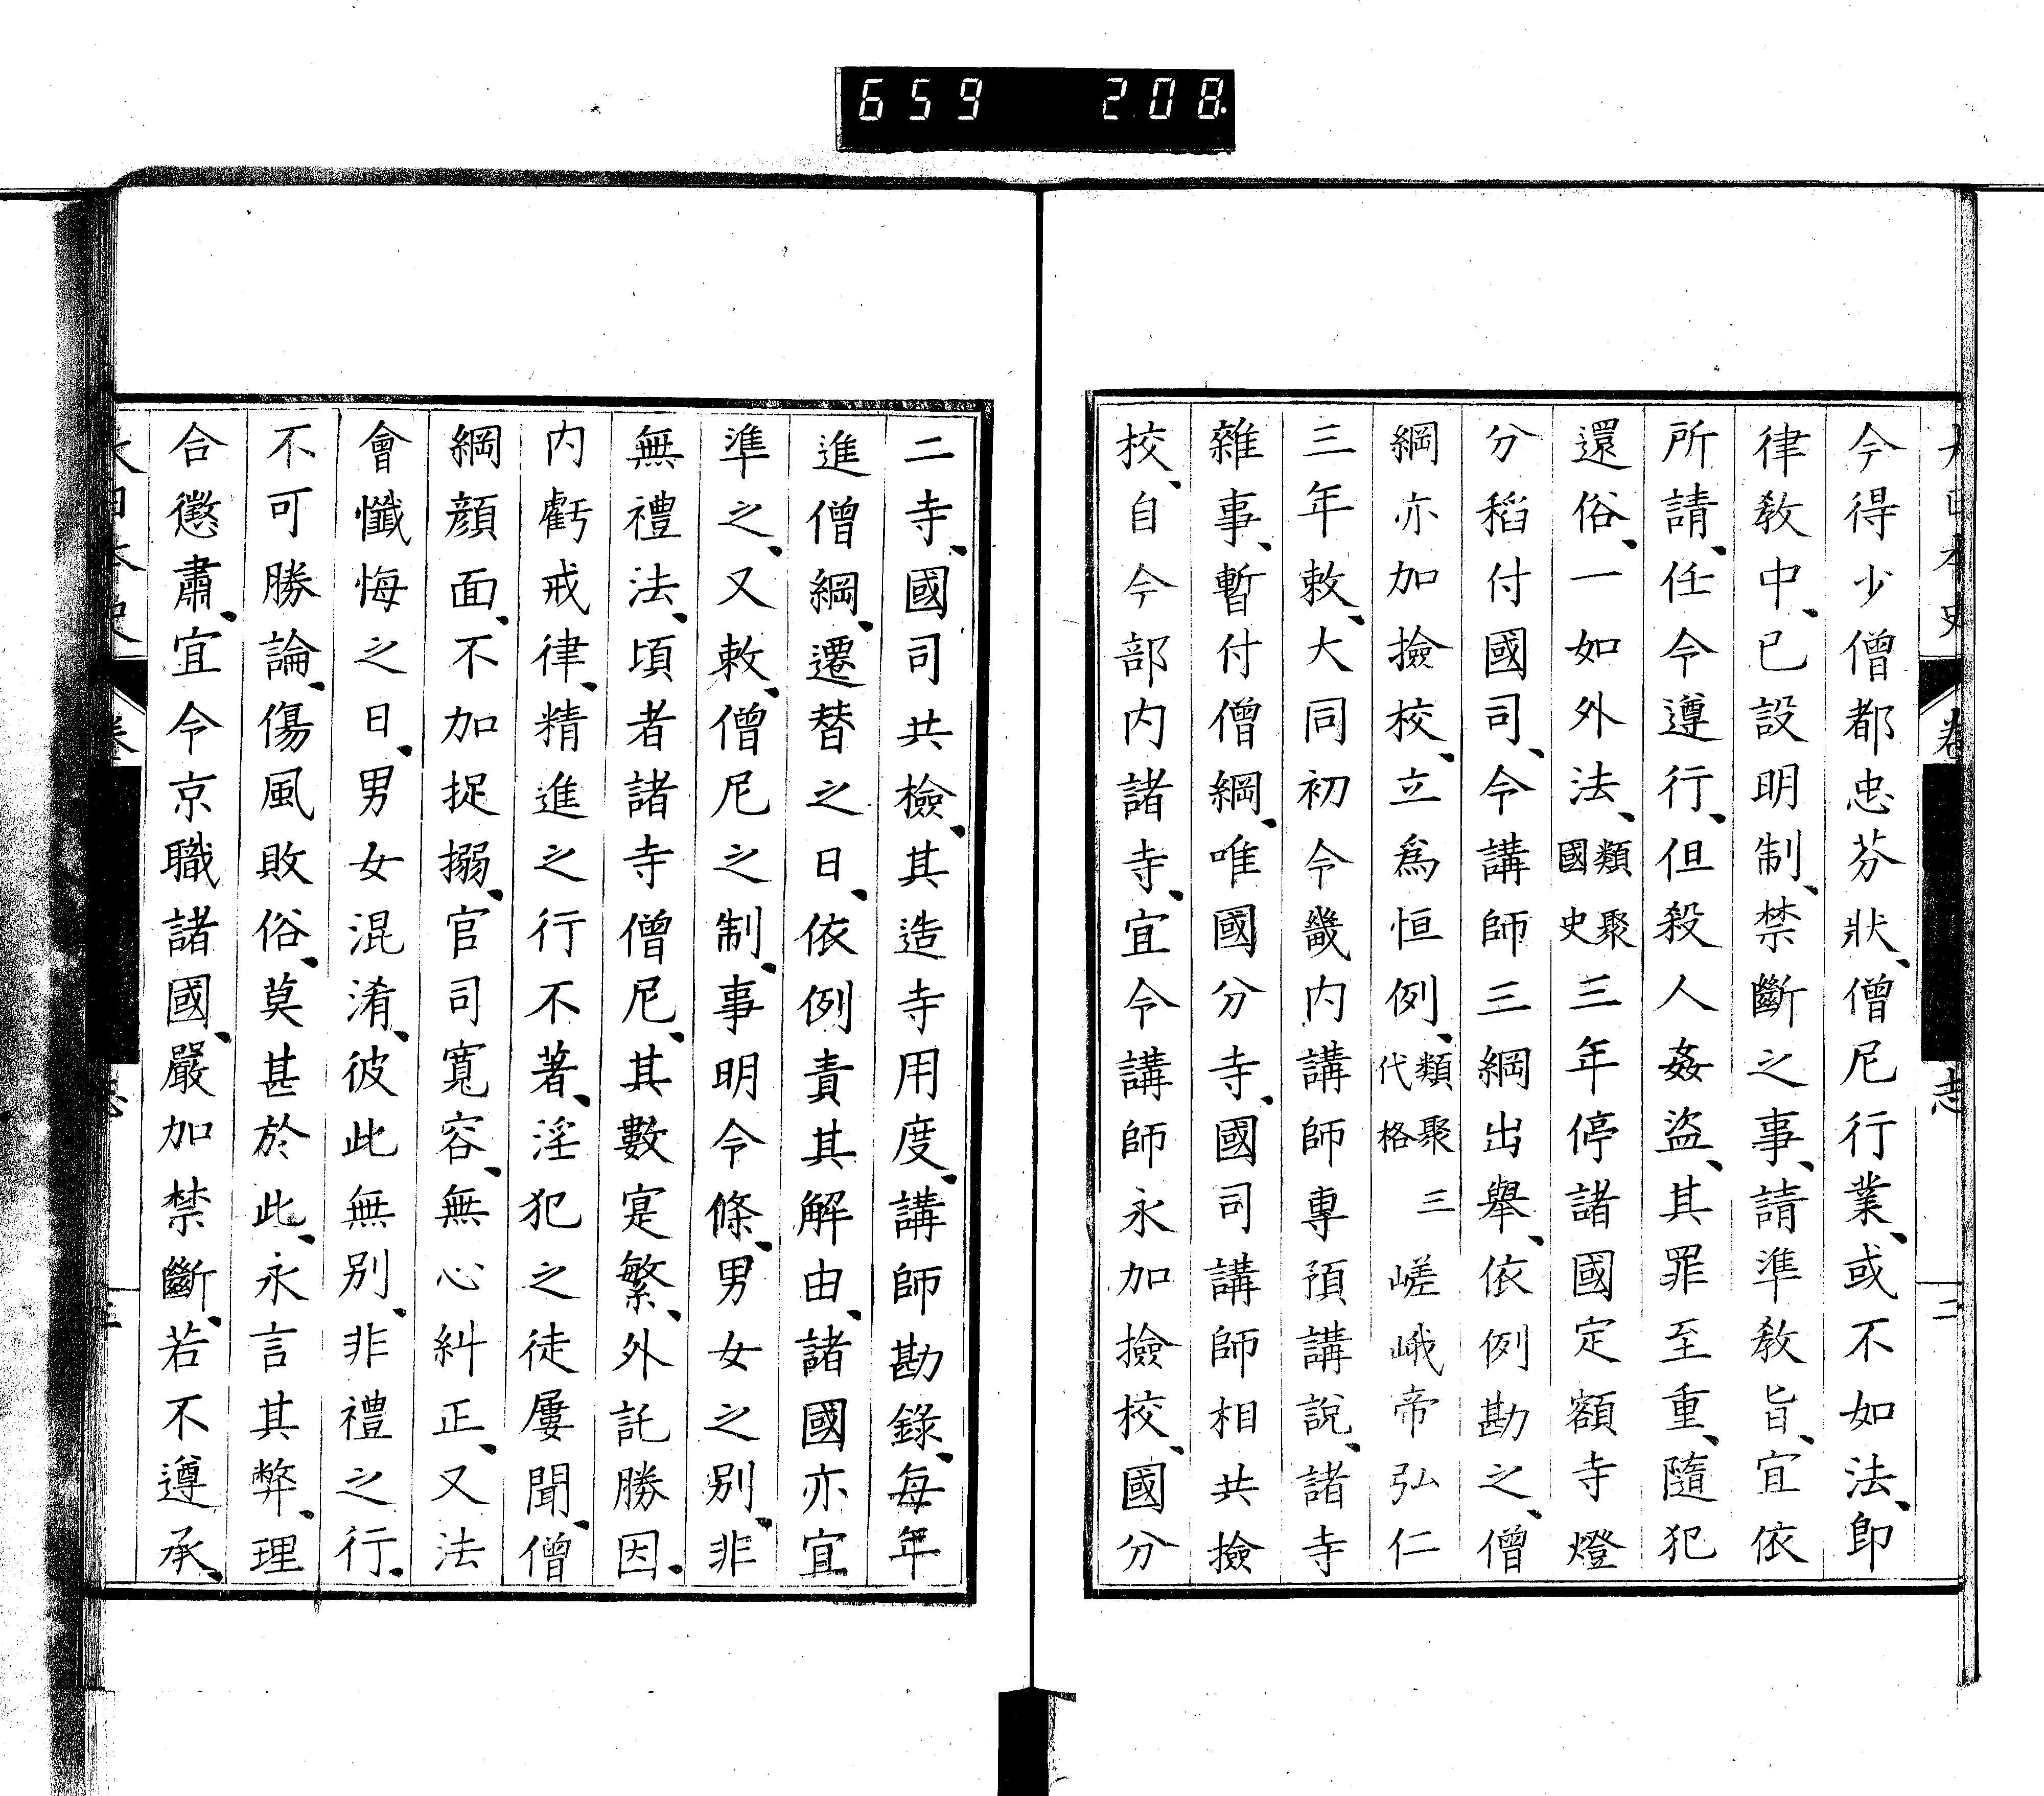 659 208
今得少僧都忠芬狀、僧尼行業、或不如法、卽
律教中、已設明制、禁斷之事、請準教旨、宜依
所請、任令遵行、但殺人姦盜、其罪至重、隨犯
還俗、一如外法、類聚國史三年停諸國定額寺燈
分稻付國司、令講師三綱出舉、依例勘之、僧
綱亦加撿校、立爲恒例、類聚三代格嵯峨帝弘仁
三年敕、大同初令畿内講師專預講說、諸寺
雜事、暫付僧綱、唯國分寺、國司講師相共撿
校、自今部内諸寺、宜令講師永加撿校、國分
二寺、國司共檢、其造寺用度、講師勘錄、每年
進僧綱、遷替之日、依例責其解由、諸國亦宜
準之、又敕、僧尼之制、事明令條、男女之別、非
無禮法、頃者諸寺僧尼、其數寔繁、外託勝因、
内虧戒律、精進之行不著、淫犯之徒屢聞、僧
綱顏面、不加捉搦、官司寬容、無心糾正、又法
會懺悔之日、男女混淆、彼此無別、非禮之行、
不可勝論、傷風敗俗、莫甚於此、永言其弊、理
合懲肅、宜令京職諸國、嚴加禁斷、若不遵承、